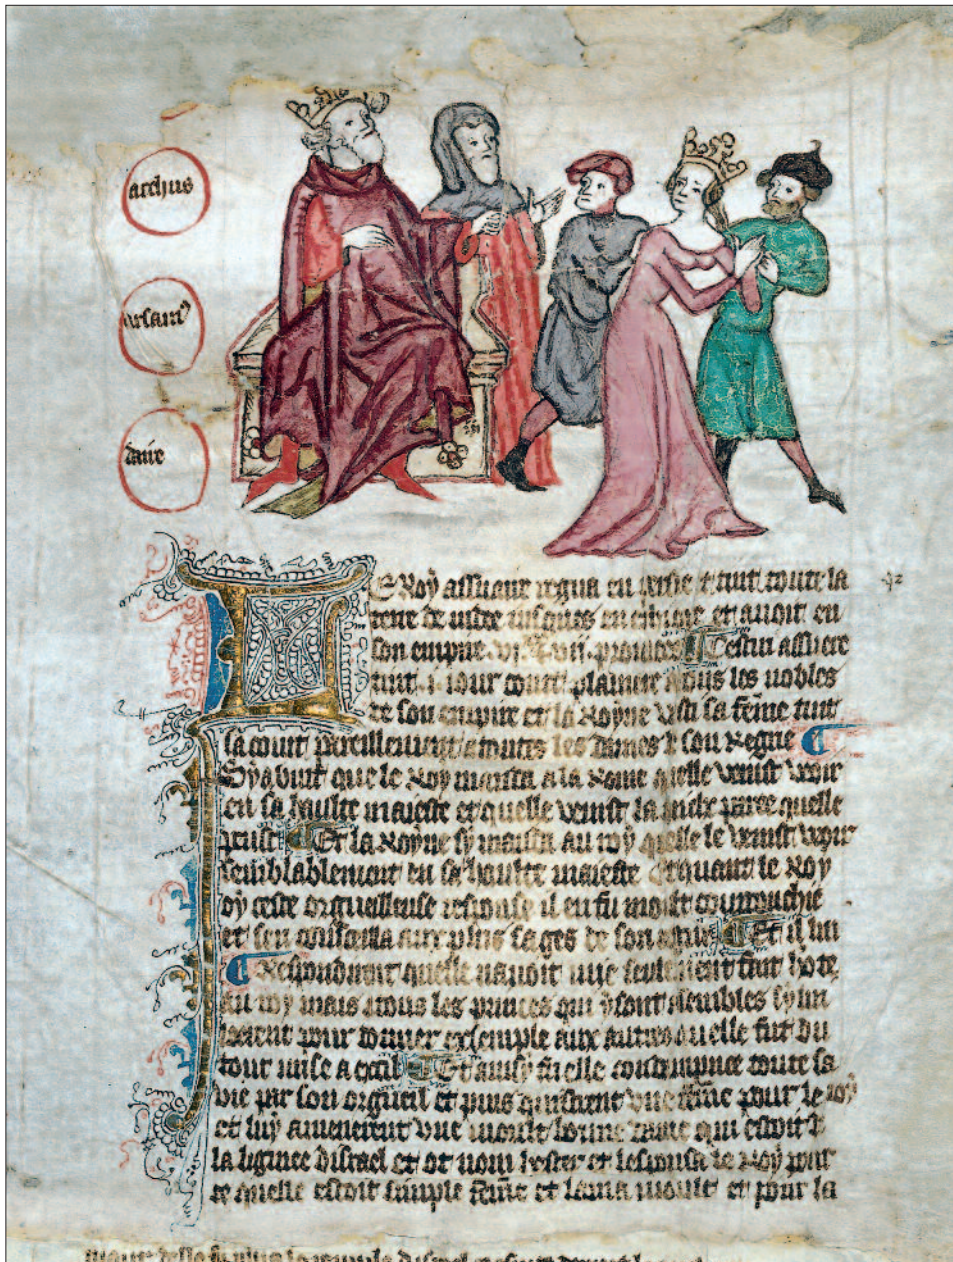 archus
arsami9
daire
LE Roy assuaire regna en perse et tint toute la
terre de inde jusques en ethiope et avoit en
son empire .vi.xx vii. provinces Cestui assuere
tint .i. jour court planiere a tous les nobles
de son empire et la Royne vasti sa feme tint
sa court pareillement a toutes les dames de son Regne
Sy avint que le Roy manda a la Royne quelle venist veoir
en sa haulte maieste et quelle venist la mielx paree quelle
peust Et la Royne sy manda au roy quelle le venist veoir
semblablement en sa haulte maieste Et quant le Roy
oy ceste orgueilleuse response il en fu moult courrouchie
et sen conseilla aux plus sages de son Et il lui
Respondirent quelle navoit mie seulement fait honte
au roy mais a tous les princes qui y sont
pour donner exsemple aux autres quelle fut du
tout mise a exil Et ainsy fu elle condempnee toute sa
vie par son orgueil et puis quistrent une feme pour le roy
et luy amenerent une moult bonne dame qui estoit de
la lignee disrael et ot nom hester et lespousa le Roy pour
ce quelle estoit simple feme et lama moult et pour la